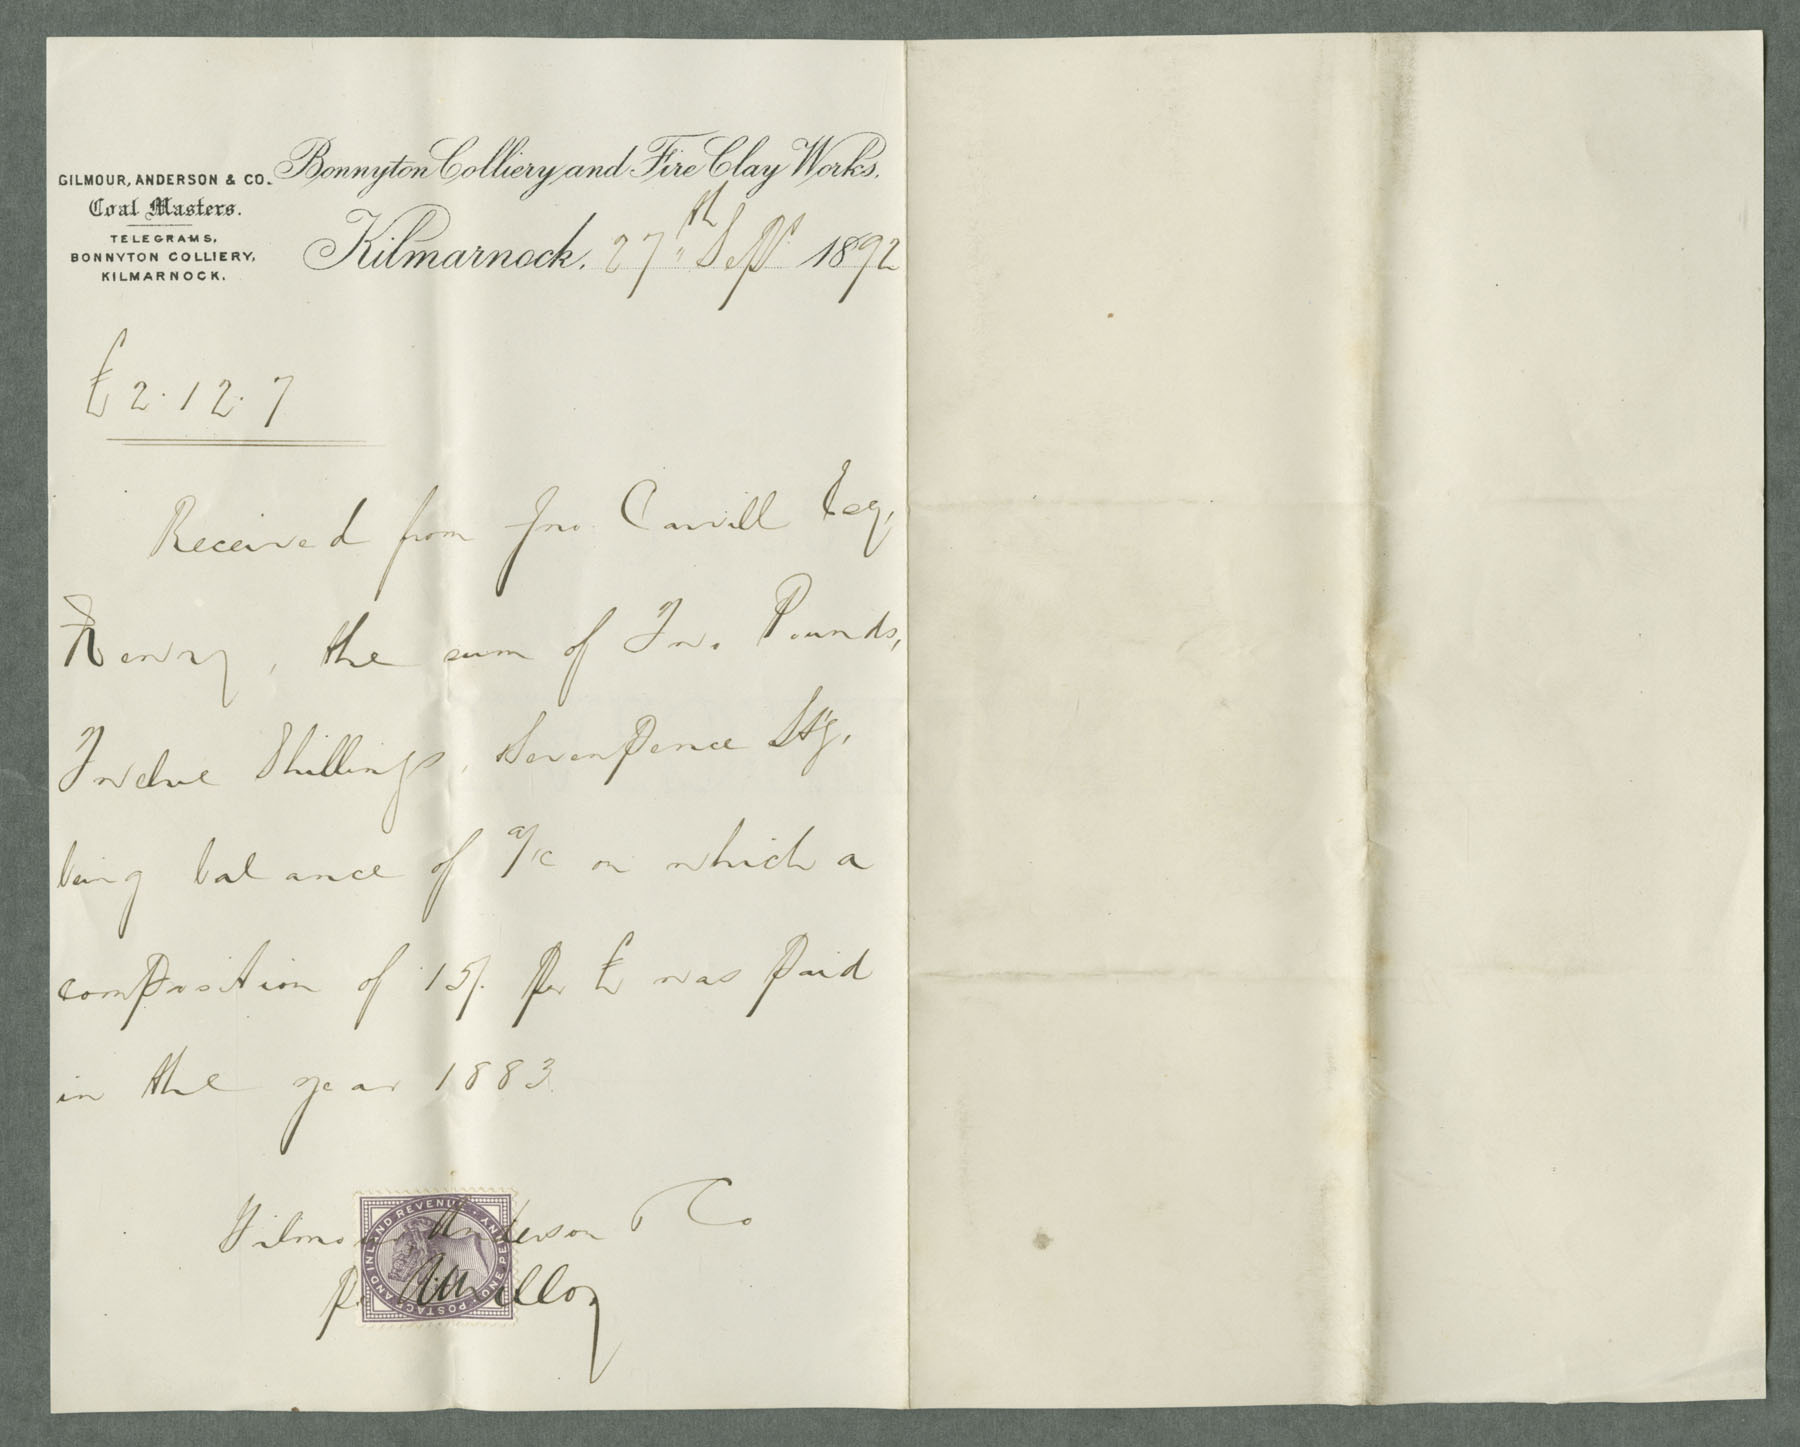 GILMOUR, ANDERSON & CO.
Coal Masters.
TELEGRAMS,
BONNYTON COLLIERY,
KILMARNOCK.
Bonnyton Colliery and Fire Clay Works.
Kilmarnock. 27th Sept 1892
£2.12.7
Received from Jno. Carvill Esq,
Newry, the sum of Two Pounds,
Twelve Shillings, Sevenpence Stg,
being balance of a/c on which a
composition of 15/. per £ was paid
in the year 1883.
Gilmour Anderson & Co
p.
POSTAGE AND INLAND REVENUE · ONE PENNY